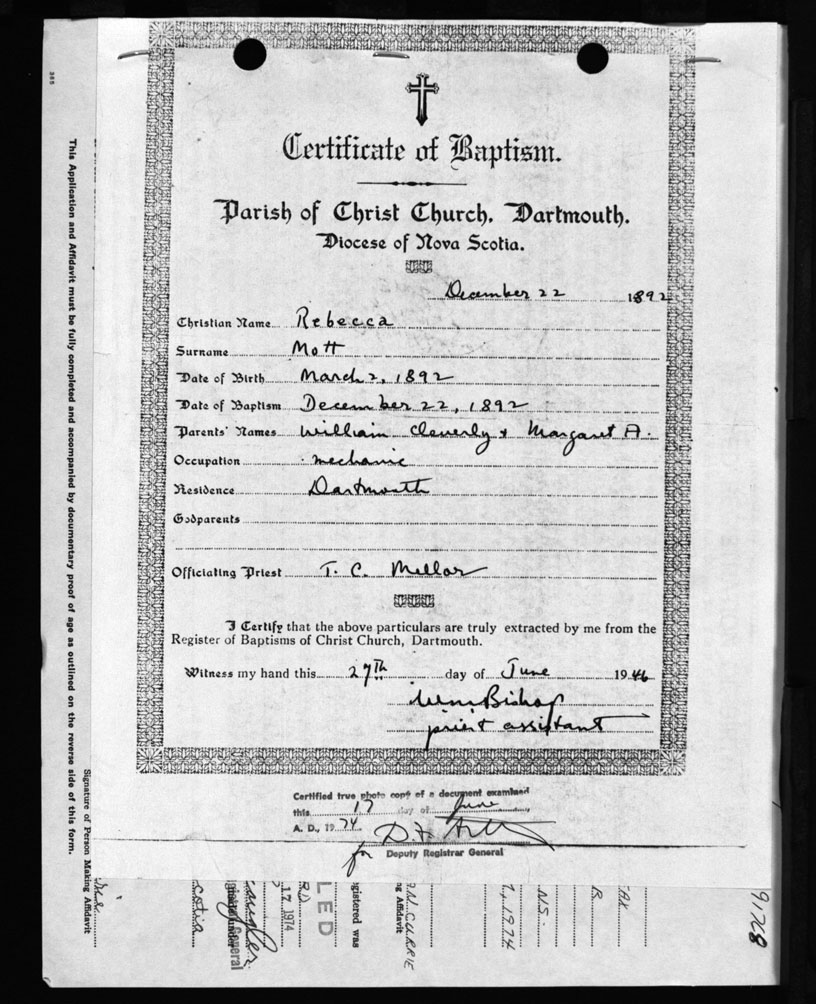 Certificate of Baptism.
Parish of Christ Church, Dartmouth.
Diocese of Nova Scotia.
December 22 1892
Christian Name Rebecca
Surname Mott
Date of Birth March 2, 1892
Date of Baptism December 22, 1892
Parents' Names William Cleverly & Margaret A.
Occupation mechanic
Residence Dartmouth
Godparents
Officiating Priest T. C. Mellor
I Certify that the above particulars are truly extracted by me from the
Register of Baptisms of Christ Church, Dartmouth.
Witness my hand this 27th day of June 1946
Wm Bishop
priest assistant
Certified true photo copy of a document examined
this 17 day of June
A. D., 1974
for Deputy Registrar General
365
This Application and Affidavit must be fully completed and accompanied by documentary proof of age as outlined on the reverse side of this form.
Signature of Person Making Affidavit
Scotia
General
17 1974
LED
gistered was
ng Affidavit
N. CURRIE
1974
N.S.
91728